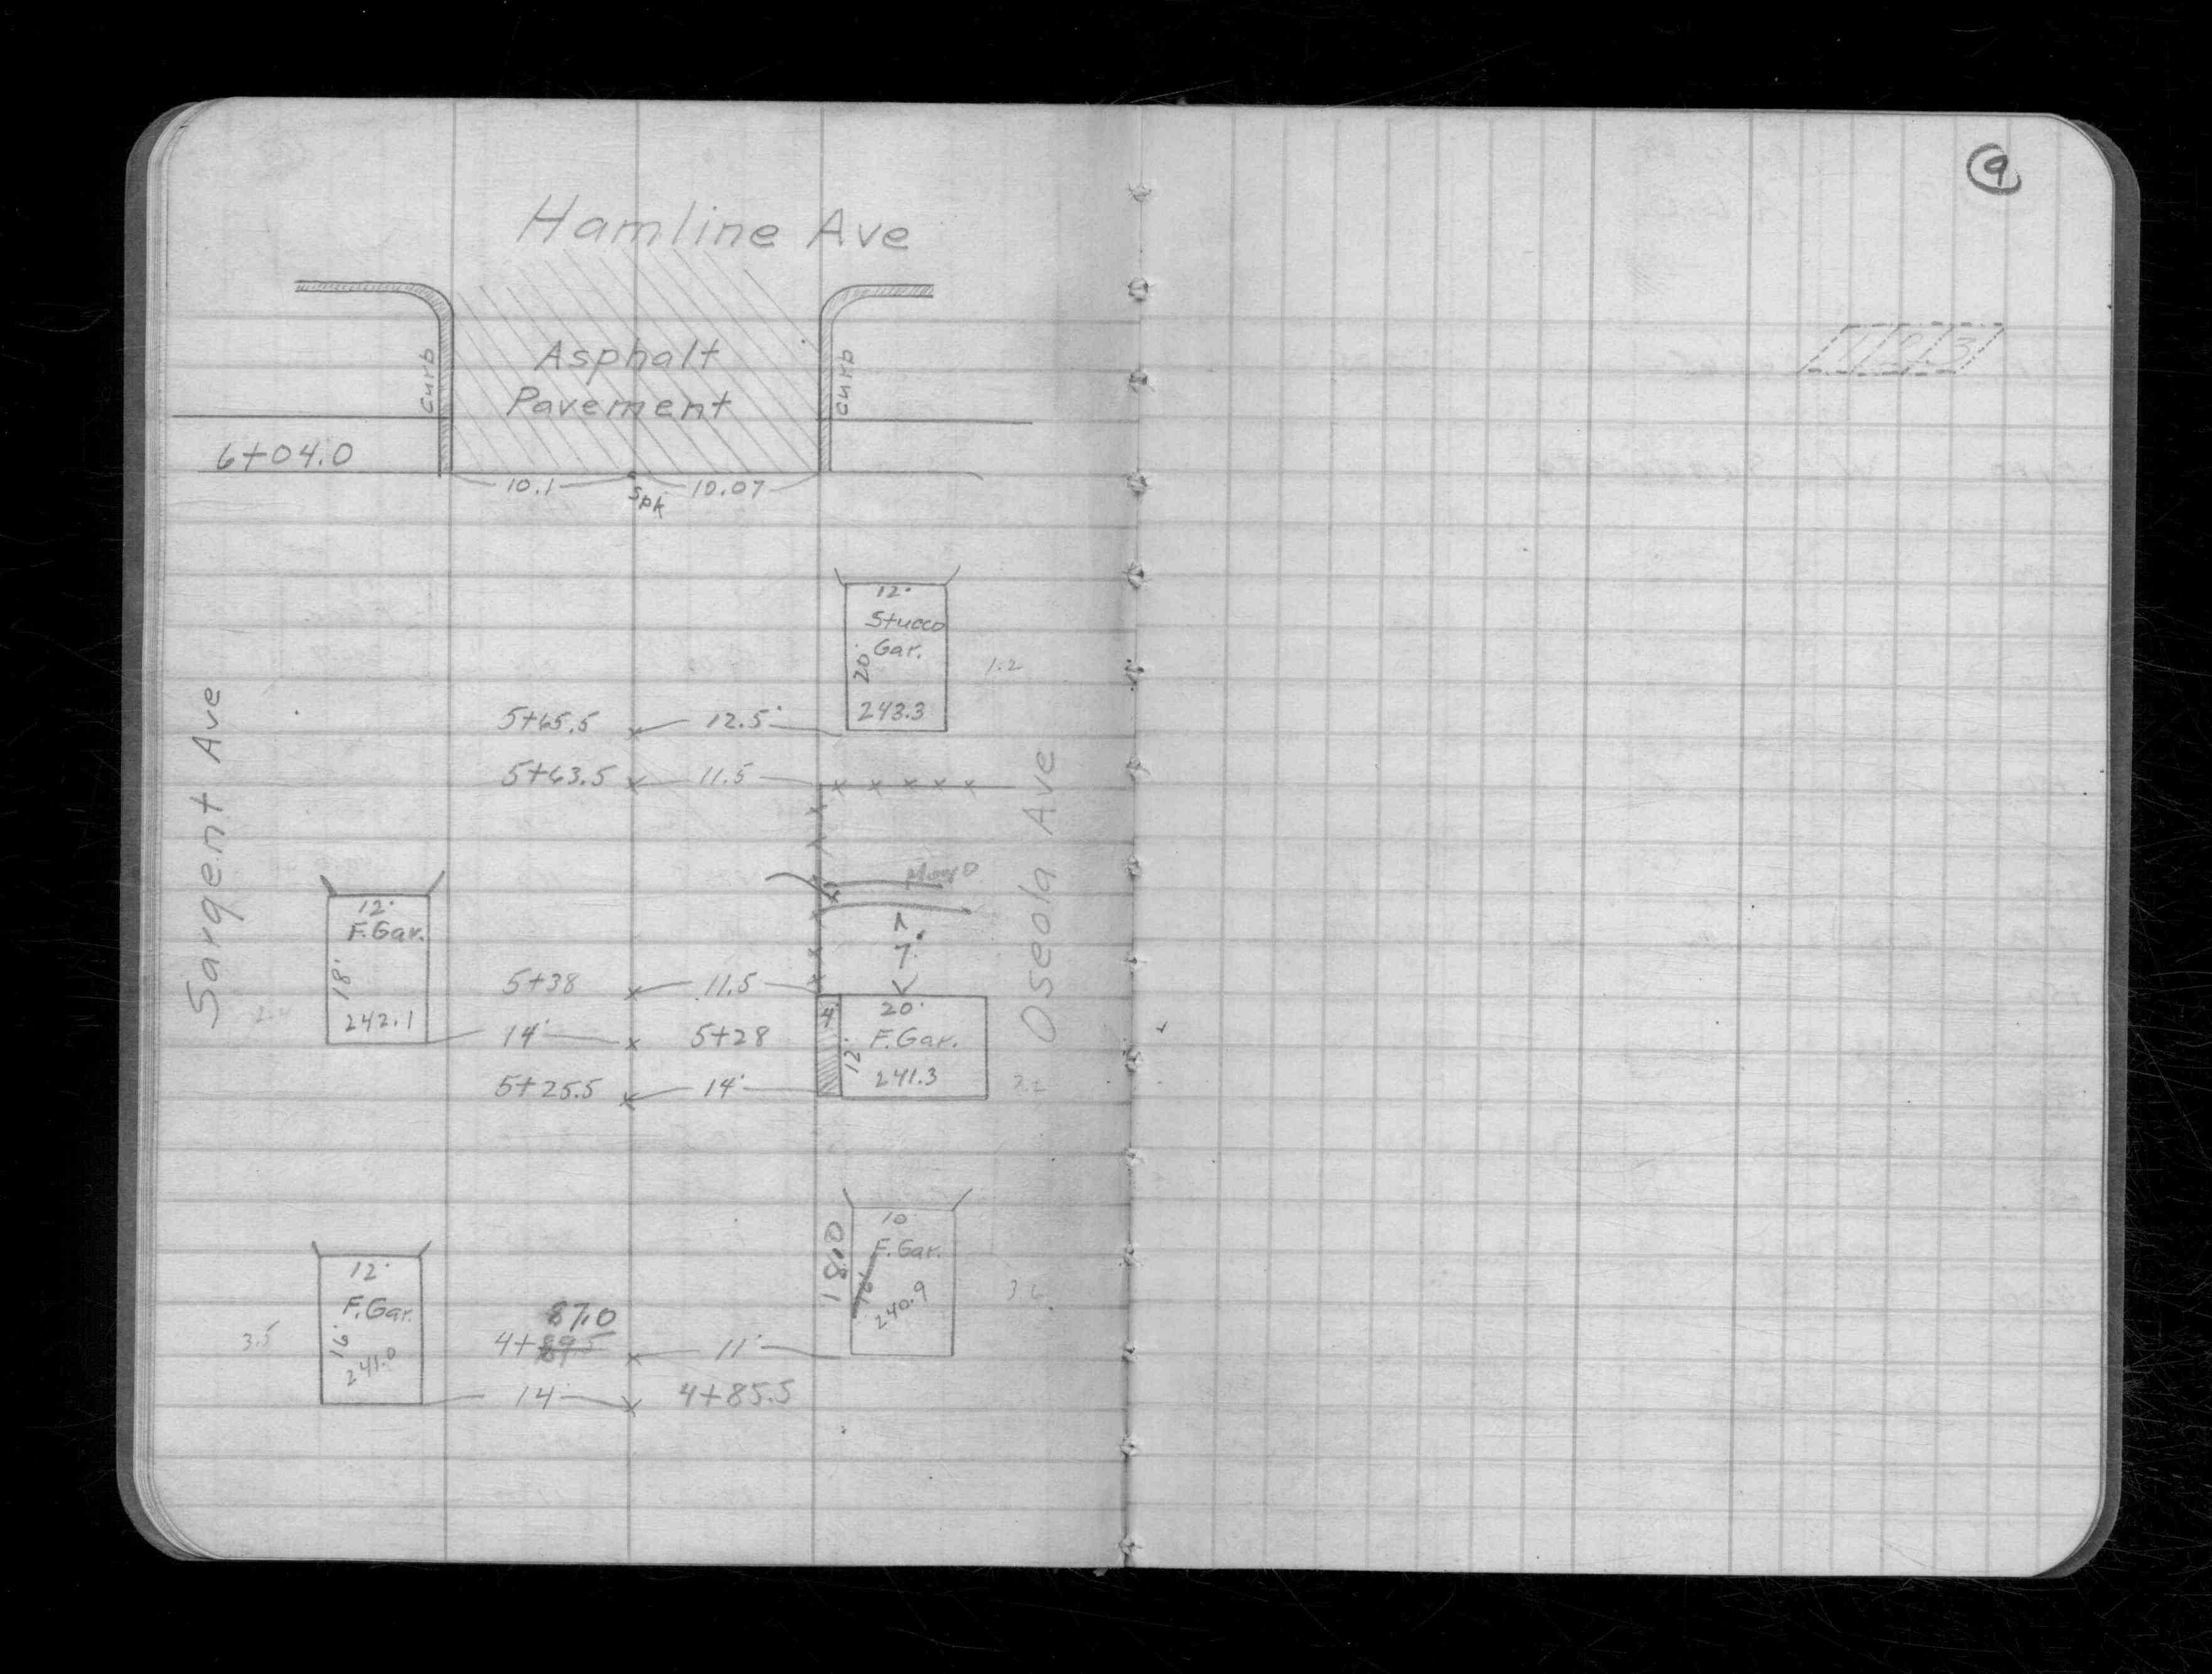 9
Hamline Ave
Asphalt
Pavement
curb
curb
6+04.0
10.1
Spk
10.07
1 2 3
12'
Stucco
Gar.
20'
243.3
1.2
5+65.5
12.5'
5+63.5
11.5
Sargent Ave
Osceola Ave
12'
F.Gar.
18'
242.1
2.4
7'
5+38
11.5
14'
5+28
5+25.5
14'
4'
20'
F.Gar.
12'
241.3
3.2
18.0
10
F.Gar.
16'
240.9
3.6
12'
F.Gar.
16'
241.0
3.5
87.0
4+89.5
11'
14'
4+85.5